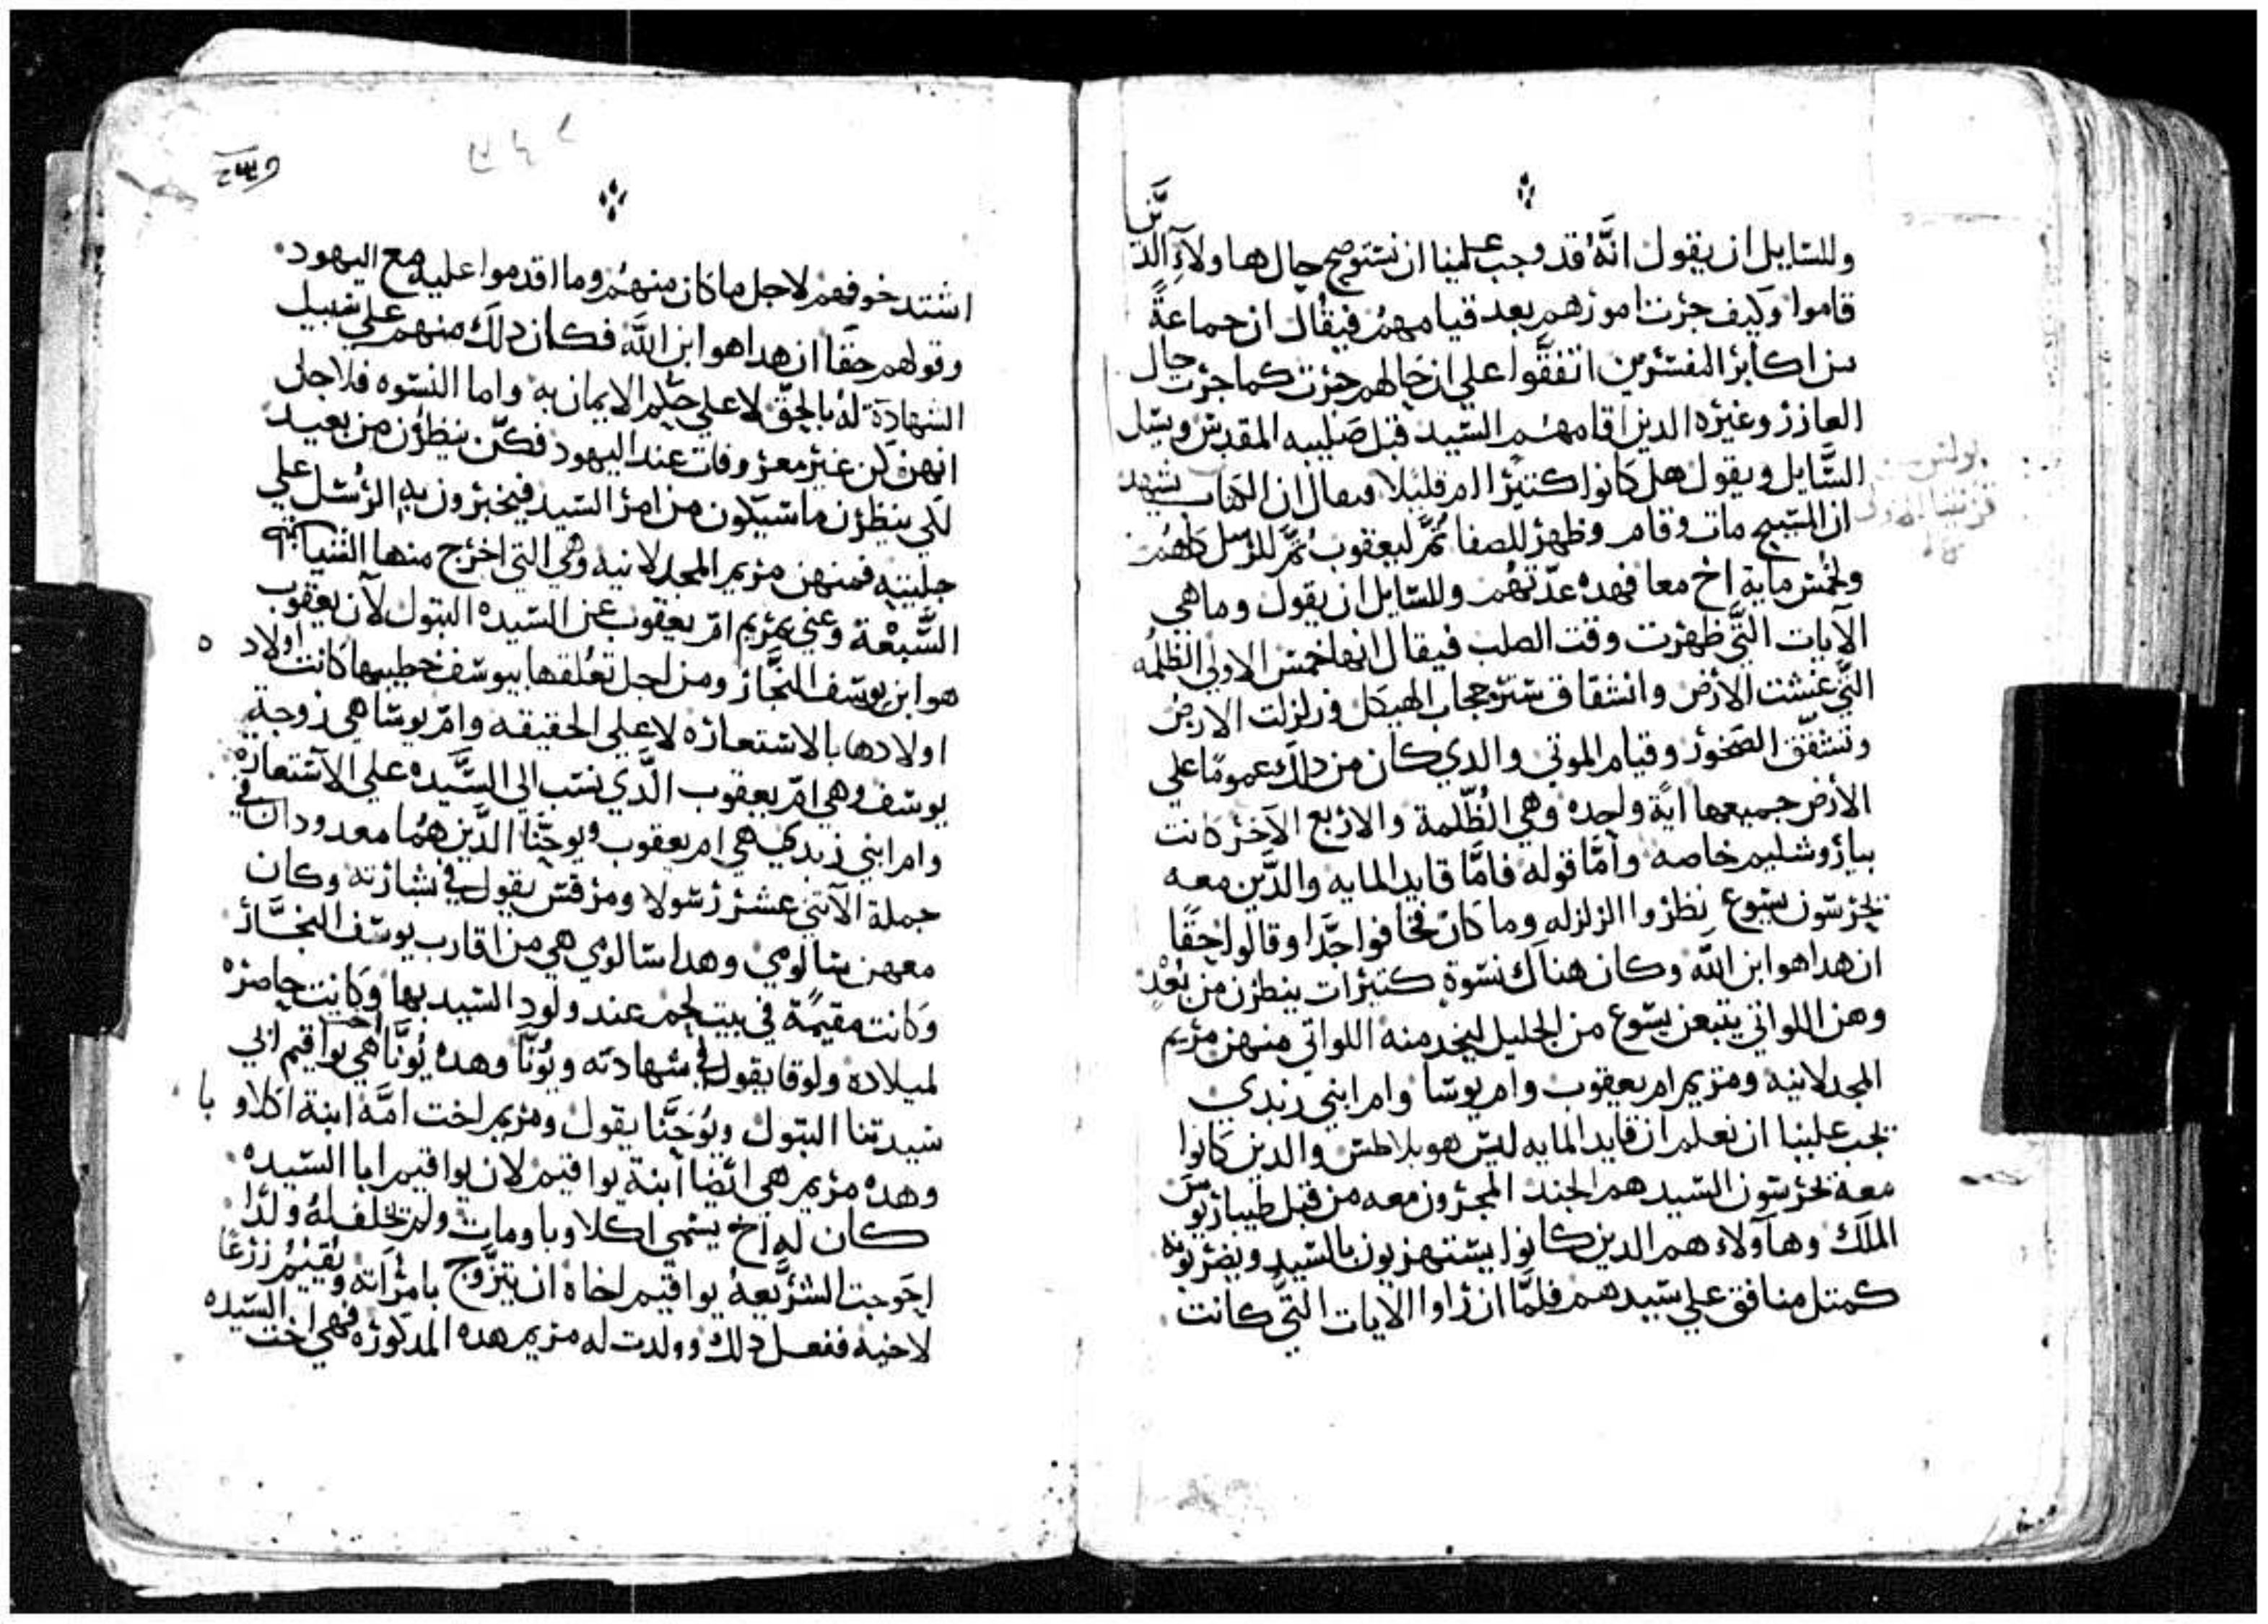 وللسايل ان يقول انَّهُ قد وجب علينا ان نستوضح حال هاولآءِ الدَّين
قاموا وكيف جرت امورهم بعد قيامهمُ فيقُال ان جماعةً
من اكابر المفسرين اتفقَّوا علي ان حَالهم جرت كما جرت حال
العازر وغيره الدين اقامهُم السّيد قبل صَلبيه المقدس ويسل
السَّايل ويقول هل كانوا كتيرًا ام قليلا فيقال ان الكتاب يشهد
ان المسيح مات وقام وظهر للصفا تمَّ ليعقوب تمَّ للرسل كلهُم
ولخمس ماية اخ معا فهده عدّتهُم وللسايل ان يقول وما هي
الآيات التَّي ظهرت وقت الصلب فيقال انها خمس الاولي الظلمُه
التَّي غشت الأرض وانشقاق ستر حجاب الهيكل وزلزلت الارض
وتشقّق الصَخور وقيام الموتي والدي كان من دلك عمومًا علي
الأرض جميعها ايًة واحده وهي الظُّلمة والاربع الآخر كانت
بياروشليم خاصه وأمَّا قوله فامَّا قايد المايه والدَّين معه
يحرسون يسوع نظروا الزلزله وما كان فخافوا جدًّا وقالوا حقًا
ان هدا هو ابن اللَّه وكان هناك نسوة كتيرات ينظرن من بُعْدٍ
وهن اللواتي يتبعن يسوع من الجليل ليخدمنه اللواتي منهن مريم
المجدلانيه ومريم ام يعقوب وام يوسا وام ابني زبدي
يجب علينا ان نعلم ان قايد المايه ليس هو بلاطس والدين كانوا
معه يحرسون السيد هم الجند المجرون معه من قبل طيباريوس
الملك وهاولاء هم الدين كانوا يستهزيون بالسيد ويضربونه
كمتل منافق علي سيدهم فلمَّا ان راوا الايات التَّي كانت
بولس
قرنتيا الاولي
اشتد خوفهم لاجل ما كان منهُم وما اقدموا عليه مع اليهود
وقولهم حقا ان هدا هو ابن اللَّه فكان دلك منهم علي سبيل
الشهادة له بالحقّ لا علي حكم الايمان به واما النسوه فلاجل
انهن كن غير معروفات عند اليهود فكنّ ينظرن من بعيد
لكي ينظرن ما سيكون من امر السيد فيخبرون به الرُسل علي
جليته فمنهن مريم المجدلانيه وهي التي اخرج منها الشياطين
السَّبعْة وعني بمريم امّ يعقوب عن السّيده البتول لآن يعقوب
هو ابن يوسف النجَّار ومن اجل تعلُقها بيوسف خطيبها كانت اولاد
اولادها بالاستعاره لا علي الحقيقه وامّ يوسا هي زوجة
يوسف وهي امّ يعقوب الَّدي نسب الي السَّيده علي الآستعاره
وام ابني زبدي هي ام يعقوب ويوحنّا الدَّين همُا معدودان في
جملة الآتني عشر رسولا ومرقس يقول في بشارته وكان
معهن سالومي وهدا سالومي هي من اقارب يوسف النجَّار
وكانت مقيمًة في بيت لحم عند ولود السيد بها وكانت حاضره
لميلاده ولوقا يقول في شهادته ويُونَّا وهده يُونَّا هي اخت يواقيم ابي
سيدتنا البتول ويُوحَنَّا يقول ومريم اخت امَّه ابنة اكلاوبا
وهده مريم هي ائضا ابنة يواقيم لان يواقيم ابا السيده
كان له اخ يسمي اكلاوبا ومات ولم يخلف لهُ ولدًا
احَوجت الشرَّيعهُ يواقيم اخاه ان يتزَّوج بامرآته ويُقيمُ زرعًا
لاخيه ففعل دلك وولدت له مريم هده المدكوره فهي اخت السيده